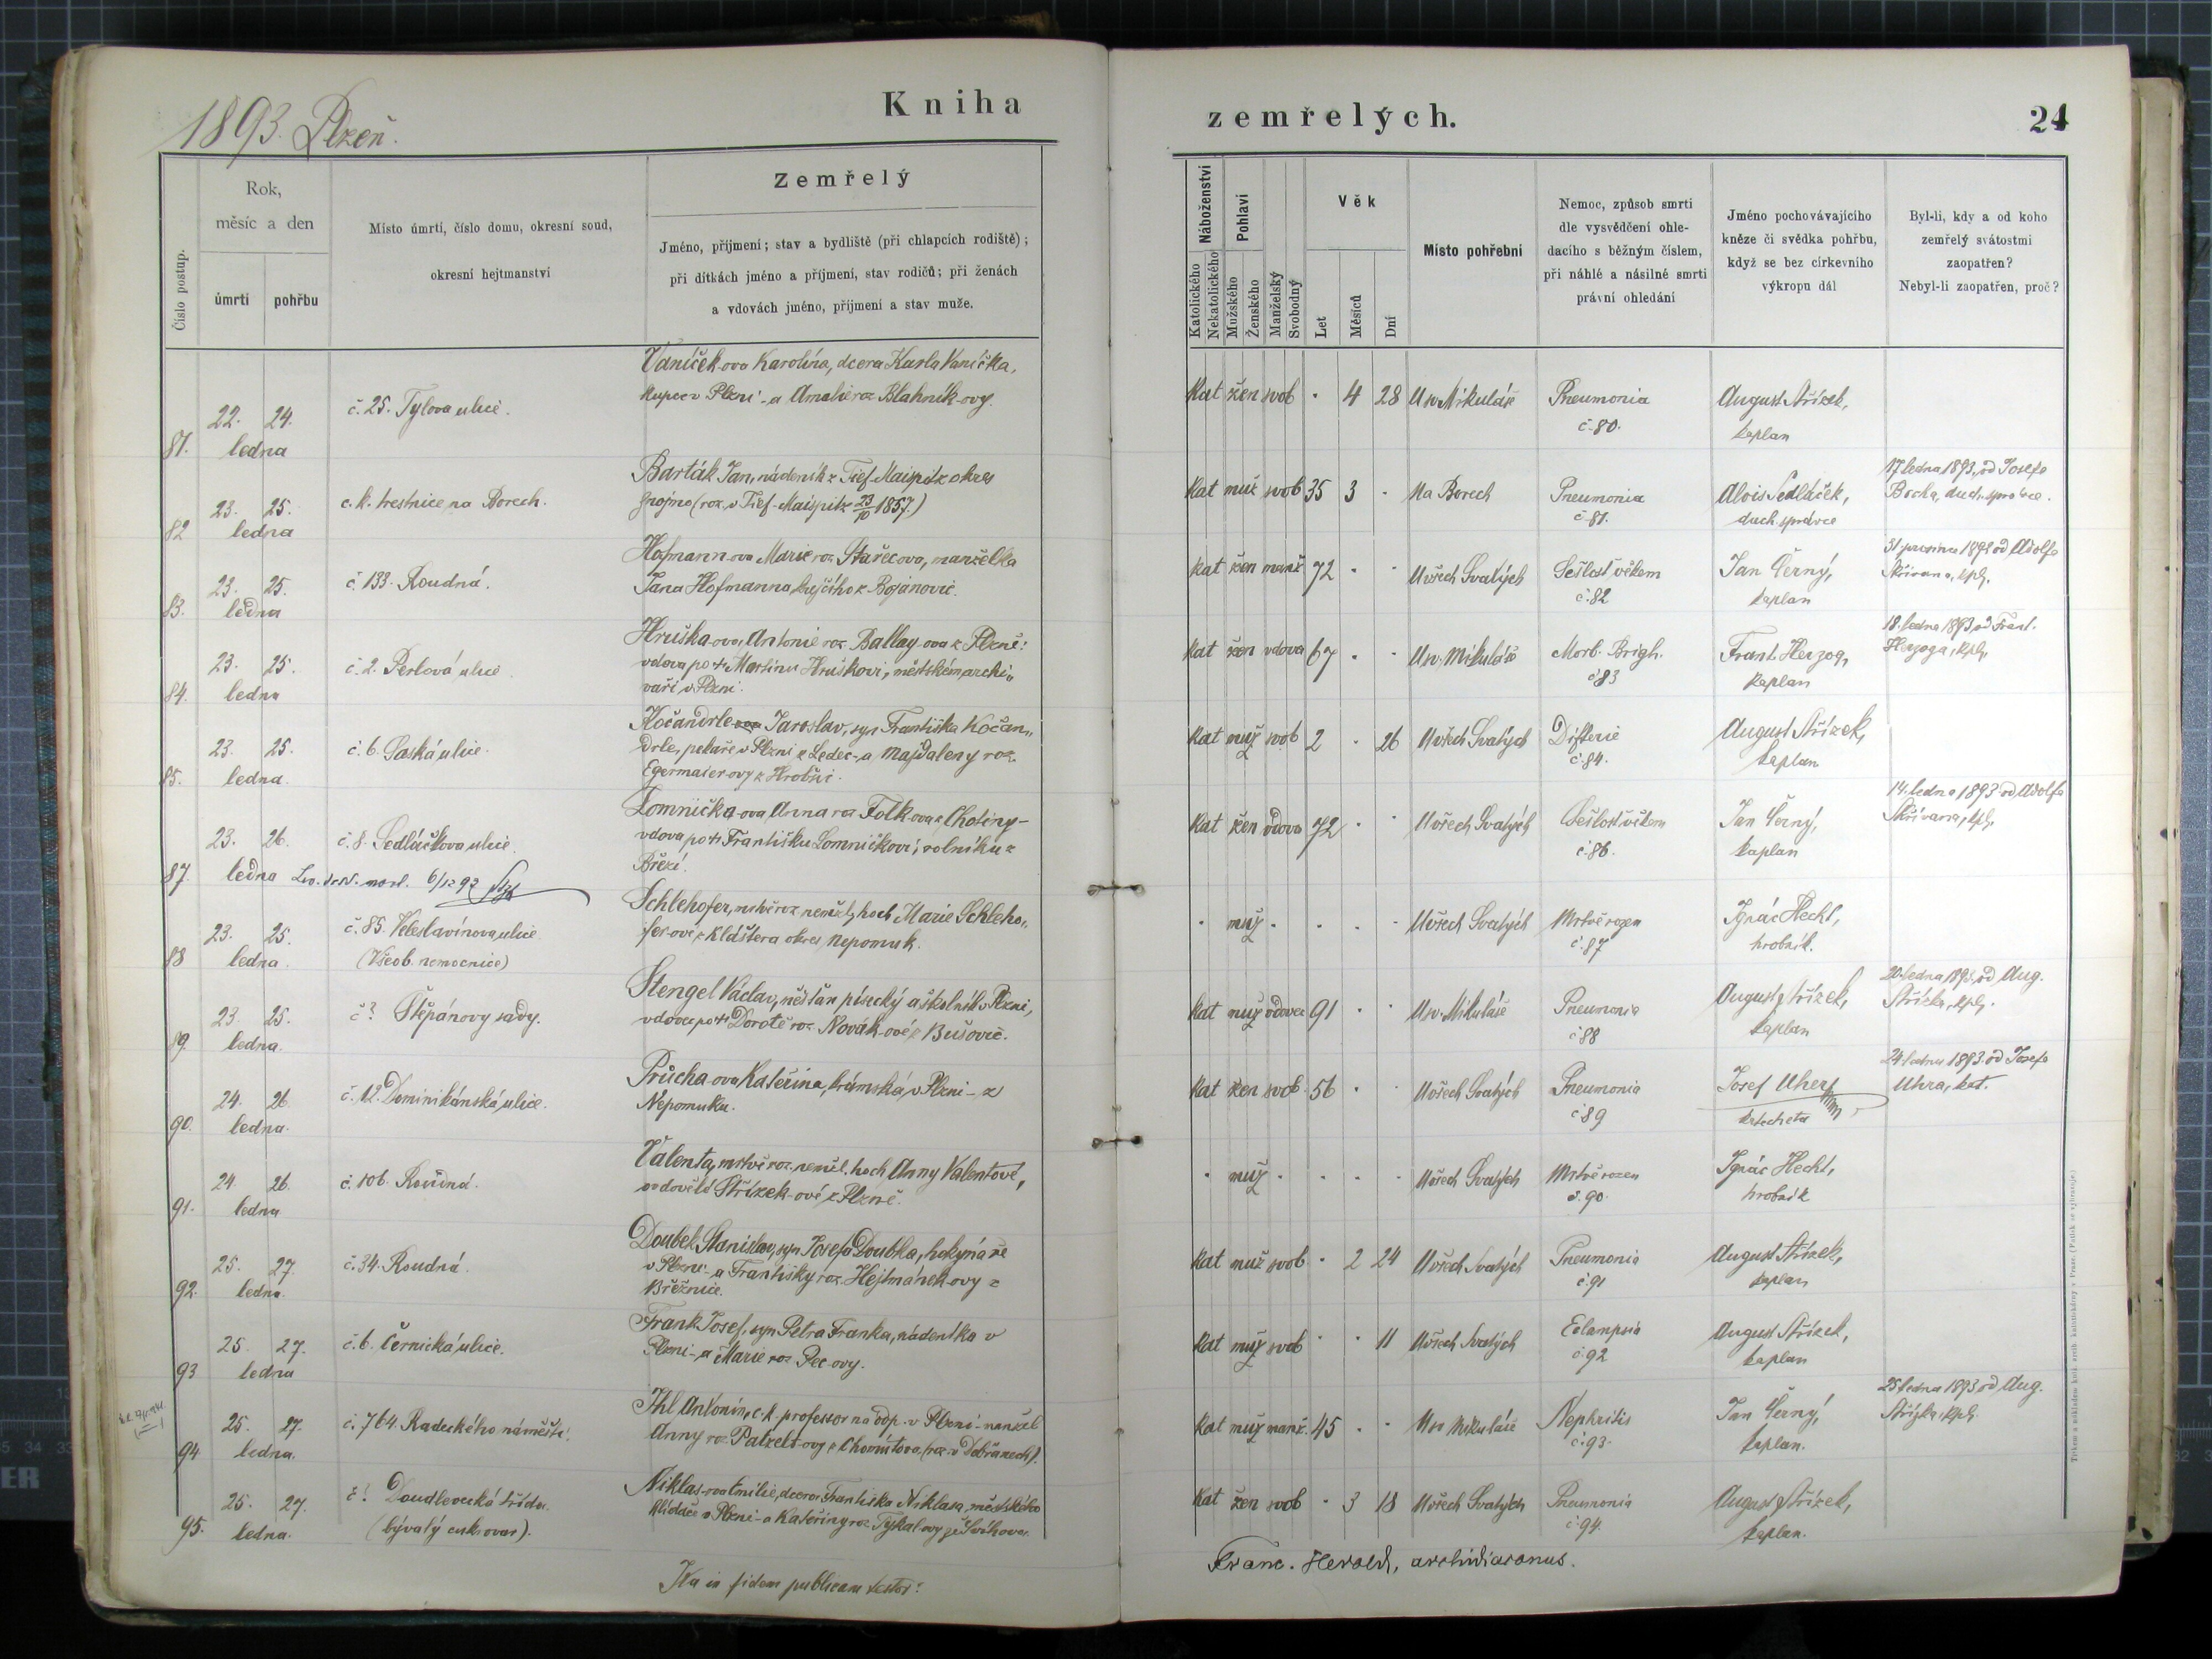 1893. Plzeň.
Kniha
zemřelých.
24
Číslo postup.
Rok,
měsíc a den
úmrtí
pohřbu
Místo úmrtí, číslo domu, okresní soud,
okresní hejtmanství
Zemřelý
Jméno, příjmení; stav a bydliště (při chlapcích rodiště);
při dítkách jméno a příjmení, stav rodičů; při ženách
a vdovách jméno, příjmení a stav muže.
Náboženství
Katolického
Nekatolického
Pohlaví
Mužského
Ženského
Manželský
Svobodný
Věk
Let
Měsíců
Dní
Místo pohřební
Nemoc, způsob smrti
dle vysvědčení ohle-
dacího s běžným číslem,
při náhlé a násilné smrti
právní ohledání
Jméno pochovávajícího
kněze či svědka pohřbu,
když se bez církevního
výkropu dál
Byl-li, kdy a od koho
zemřelý svátostmi
zaopatřen?
Nebyl-li zaopatřen, proč?
81. 22. 24. ledna
č. 25. Tylova ulice.
Vaníček-ova Karolína, dcera Karla Vaníčka,
kupce v Plzni - a Amalie roz Blahník-ovy.
Kat žen svob . 4 28 U sv. Mikuláše
Pneumonia
č. 80.
August Střízek,
kaplan
82 23. 25. ledna
c. k. trestnice na Borech.
Barták Jan, nádeník z Tief-Maispitz okres
Znojmo (roz. v Tief-Maispitz 23/10 1857.)
Kat muž svob 35 3 - Na Borech
Pneumonia
č. 81.
Alois Sedláček,
duch. správce
17 ledna 1893, od Josefa
duch. správce.
83. 23. 25. ledna
č. 133. Roudná.
Hofmann-ova Marie roz. Stařecova, manželka
Jana Hofmanna, krejčího z Bojanovic.
Kat žen manž 72 . . U všech Svatých
Sešlost věkem
č. 82
Jan Černý,
kaplan
31 prosince 1892 od Adolfa
Skřivana, kpl.
84. 23. 25. ledna
č. 2. Perlová ulice.
Hruška-ova Antonie roz. Ballay-ova z Plzně:
vdova po † Martinu Hruškovi, městském archi„
vaři v Plzni.
Kat žen vdova 67 . . U sv. Mikuláše
Morb. Brigh.
č. 83
Frant. Herzog,
kaplan
18. ledna 1893 od Frant.
Herzoga, kpl.
85. 23. 25. ledna.
č. 6. Saská ulice.
Kočandrle Jaroslav, syn Františka Kočan„
drle, pekaře v Plzni z Ledec - a Majdaleny roz.
Egermaier-ovy z Hrobčic.
Kat muž svob 2 . 26 U všech Svatých
Difterie
č. 84.
August Střízek,
kaplan
87. 23. 26. ledna
č. 8. Sedláčkova ulice.
6/12 92
Lomnička-ova Anna roz Folk-ova z Chotiny -
vdova po † Františku Lomničkovi, rolníku z
Březí.
Kat žen vdova 72 . . U všech Svatých
Sešlost věkem
č. 86.
Jan Černý,
kaplan
14. ledna 1893 od Adolfa
Skřivana, kpl.
88 23. 25. ledna.
č. 85. Veleslavínova ulice
(Všeob. nemocnice)
Schlehofer, mrtvě roz. nemžel. hoch Marie Schleho„
fer-ové z Kláštera okres Nepomuk.
. muž . . . . U všech Svatých
Mrtvě rozen
č. 87
Ignác Hecht,
hrobník.
89. 23. 25. ledna.
č? Štěpánovy sady.
Stengel Václav, měšťan písecký a školník v Plzni,
vdovec po † Dorotě roz. Novák-ové z Bušovic.
Kat muž vdovec 91 . . U sv. Mikuláše
Pneumonia
č. 88
August Střízek,
kaplan
20. ledna 1893, od Aug.
Střízka, kpl.
90. 24. 26. ledna.
č. 12. Dominikánská ulice.
Průcha-ova Kateřina, krámská v Plzni - z
Nepomuku.
Kat žen svob. 56 . . U všech Svatých
Pneumonia
č. 89
Josef Uher,
katecheta
24. ledna 1893. od Josefa
Uhra, kat.
91. 24. 26. ledna
č. 106. Roudná.
Valenta, mrtvě roz. nemžl. hoch Anny Valentové,
ovdovělé Střízek-ové z Plzně.
. muž . . . . U všech Svatých
Mrtvě rozen
č. 90.
Ignác Hecht,
hrobník
92. 25. 27. ledna.
č. 34. Roudná.
Doubek Stanislav, syn Josefa Doubka, hokynáře
v Plzni - a Františky roz. Hejtmánek-ovy z
Břežnice.
Kat muž svob . 2 24 U všech Svatých
Pneumonia
č. 91
August Střízek,
kaplan
93 25. 27. ledna
č. 6. Černická ulice.
Frank Josef, syn Petra Franka, nádeníka v
Plzni - a Marie roz Pec-ovy.
Kat muž svob . . 11 U všech Svatých
Eclampsia
č. 92
August Střízek,
kaplan
94 25. 27. ledna.
č. 764. Radeckého náměstí.
Ihl Antonín, c. k. professor na odp. v Plzni - manžel
Anny roz Patzelt-ovy z Chomutova (roz. v Dobřanech).
Kat muž manž. 45 . . U sv Mikuláše
Nephritis
č. 93.
Jan Černý,
kaplan.
25 ledna 1893 od Aug.
Střízka, kpl.
95. 25. 27. ledna.
č? Doudlevecká třída.
(bývalý cukrovar).
Niklas-ova Emilie, dcera Františka Niklasa, městského
hlídače v Plzni - a Kateřiny roz. Tykal-ovy ze Švihova.
Kat žen svob . 3 18 U všech Svatých
Pneumonia
č. 94.
August Střízek,
kaplan.
Ita in fidem publicam testor:
Franc. Herold, archidiaconus.